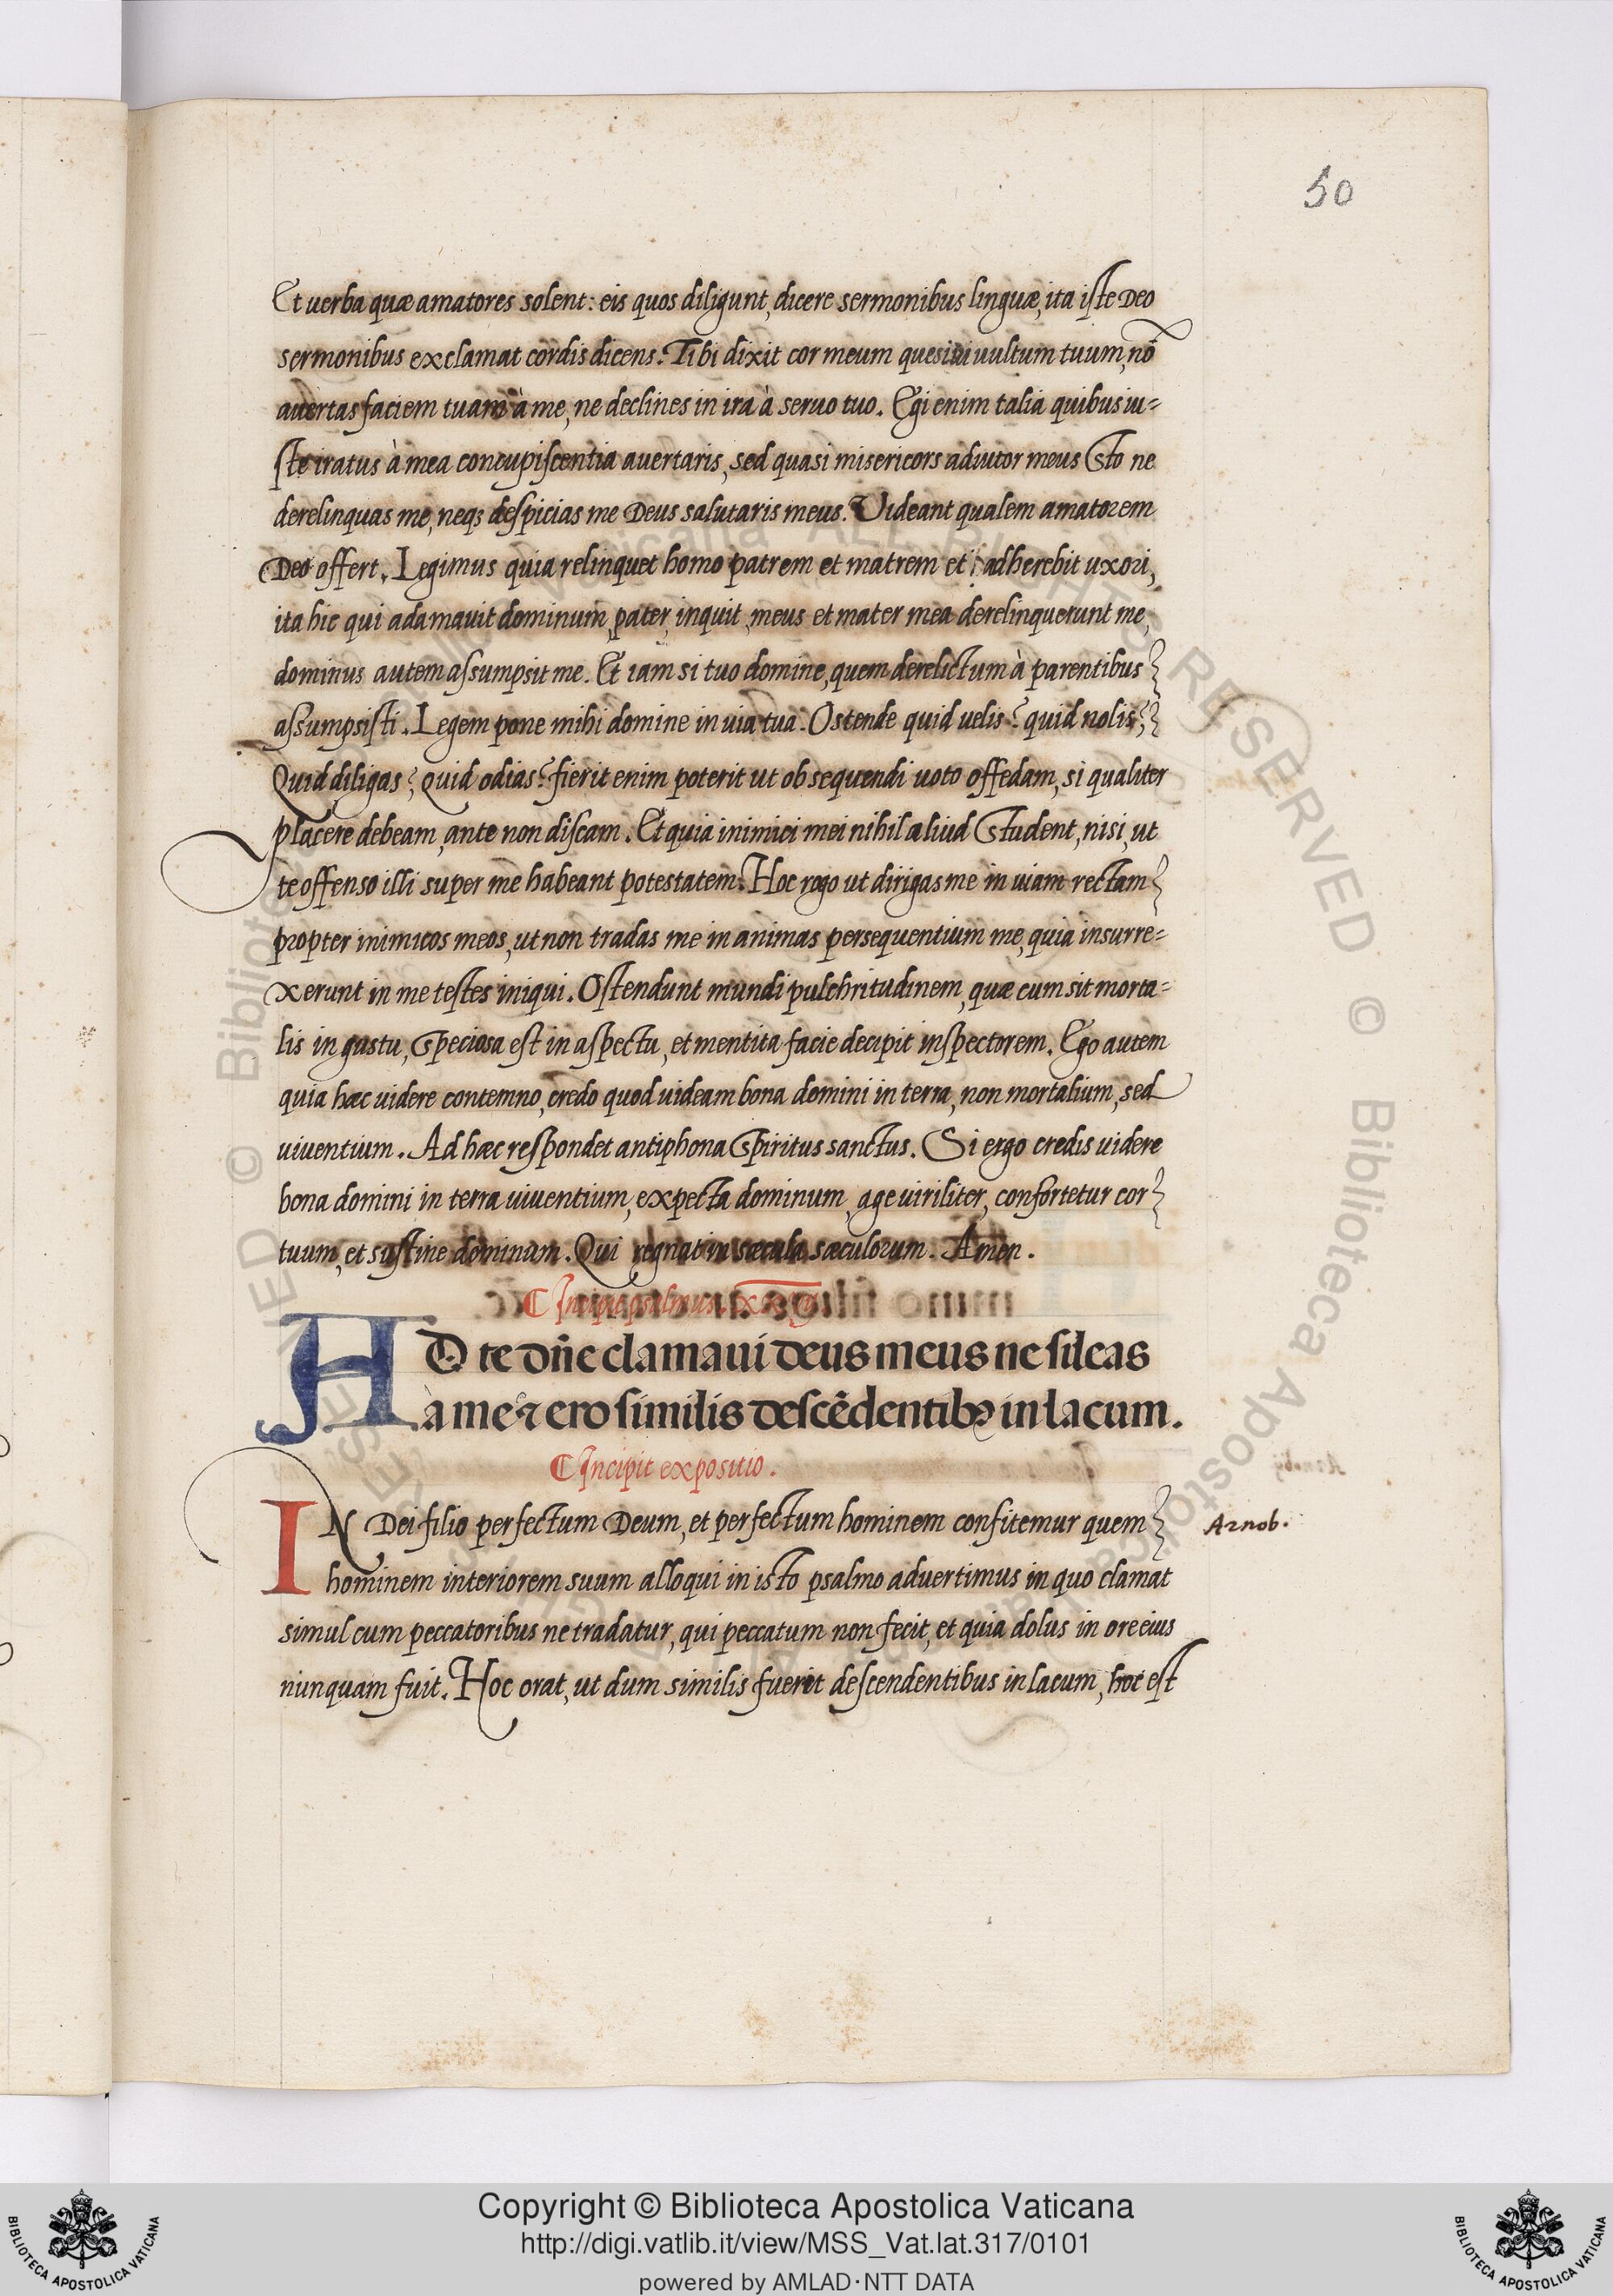 50
Et uerba quæ amatores solent: eis quos diligunt, dicere sermonibus linguæ, ita iste Deo
sermonibus exclamat cordis dicens. Tibi dixit cor meum quesiui uultum tuum, nõ
auertas faciem tuam à me, ne declines in ira à seruo tuo. Egi enim talia quibus iu-
ste iratus à mea concupiscentia auertaris, sed quasi misericors adiutor meus esto ne
derelinquas me, neq3 despicias me Deus salutaris meus. Videant qualem amatorem
Deo offert. Legimus quia relinquet homo patrem et matrem et adherebit uxori,
ita hic qui adamauit dominum, pater, inquit, meus et mater mea derelinquerunt me,
dominus autem assumpsit me. Et iam si tuo domine, quem derelictum à parentibus
assumpsisti. Legem pone mihi domine in uia tua. Ostende quid uelis? quid nolis?
Quid diligas? Quid odias? fierit enim poterit ut obsequendi uoto offedam, si qualiter
placere debeam, ante non discam. Et quia inimici mei nihil aliud student, nisi, ut
te offenso illi super me habeant potestatem. Hoc rogo ut dirigas me in uiam rectam
propter inimicos meos, ut non tradas me in animas persequentium me, quia insurre-
xerunt in me testes iniqui. Ostendunt mundi pulchritudinem, quæ cum sit morta-
lis in gastu, speciosa est in aspectu, et mentita facie decipit inspectorem. Ego autem
quia hæc uidere contemno, credo quod uideam bona domini in terra, non mortalium, sed
uiuentium. Ad hæc respondet antiphona Spiritus sanctus. Si ergo credis uidere
bona domini in terra uiuentium, expecta dominum, age uiriliter, confortetur cor
tuum, et sustine dominum. Qui regnat in sæcula sæculorum. Amen.
Incipit psalmus.
AD te dñe clamaui deus meus ne sileas
à me & ero similis descẽdentib9 in lacum.
Incipit expositio.
IN Dei filio perfectum Deum, et perfectum hominem confitemur quem
Arnob.
hominem interiorem suum alloqui in isto psalmo aduertimus in quo clamat
simul cum peccatoribus ne tradatur, qui peccatum non fecit, et quia dolus in ore eius
nunquam fuit. Hoc orat, ut dum similis fuerit descendentibus in lacum, hoc est
Copyright © Biblioteca Apostolica Vaticana
http://digi.vatlib.it/view/MSS_Vat.lat.317/0101
powered by AMLAD·NTT DATA
BIBLIOTECA APOSTOLICA VATICANA
BIBLIOTECA APOSTOLICA VATICANA